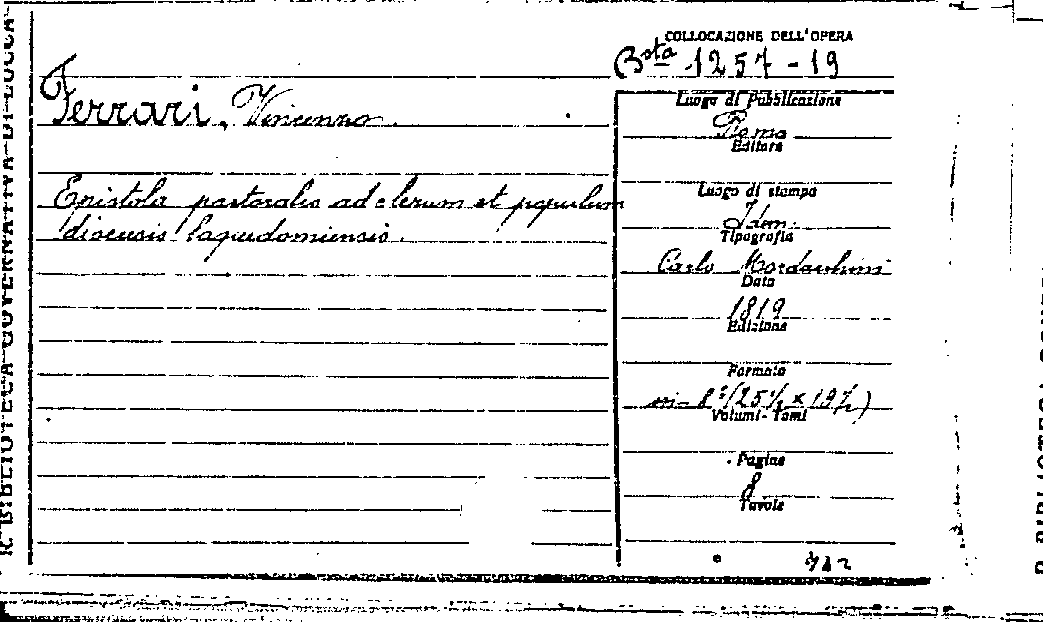 R. BIBLIOTECA GOVERNATIVA DI LUCCA
COLLOCAZIONE DELL'OPERA
Bsta 1257-19
Ferrari, Vincenzo.
Epistola pastoralis ad clerum et populum
diocesis laquedoniensis.
Luogo di Pubblicazione
Roma
Editore
Luogo di stampa
Idem.
Tipografia
Carlo Mordacchini
Data
1819
Edizione
Formato
in-8°(25½ x 19½)
Volumi - Tomi
Pagine
8
Tavole